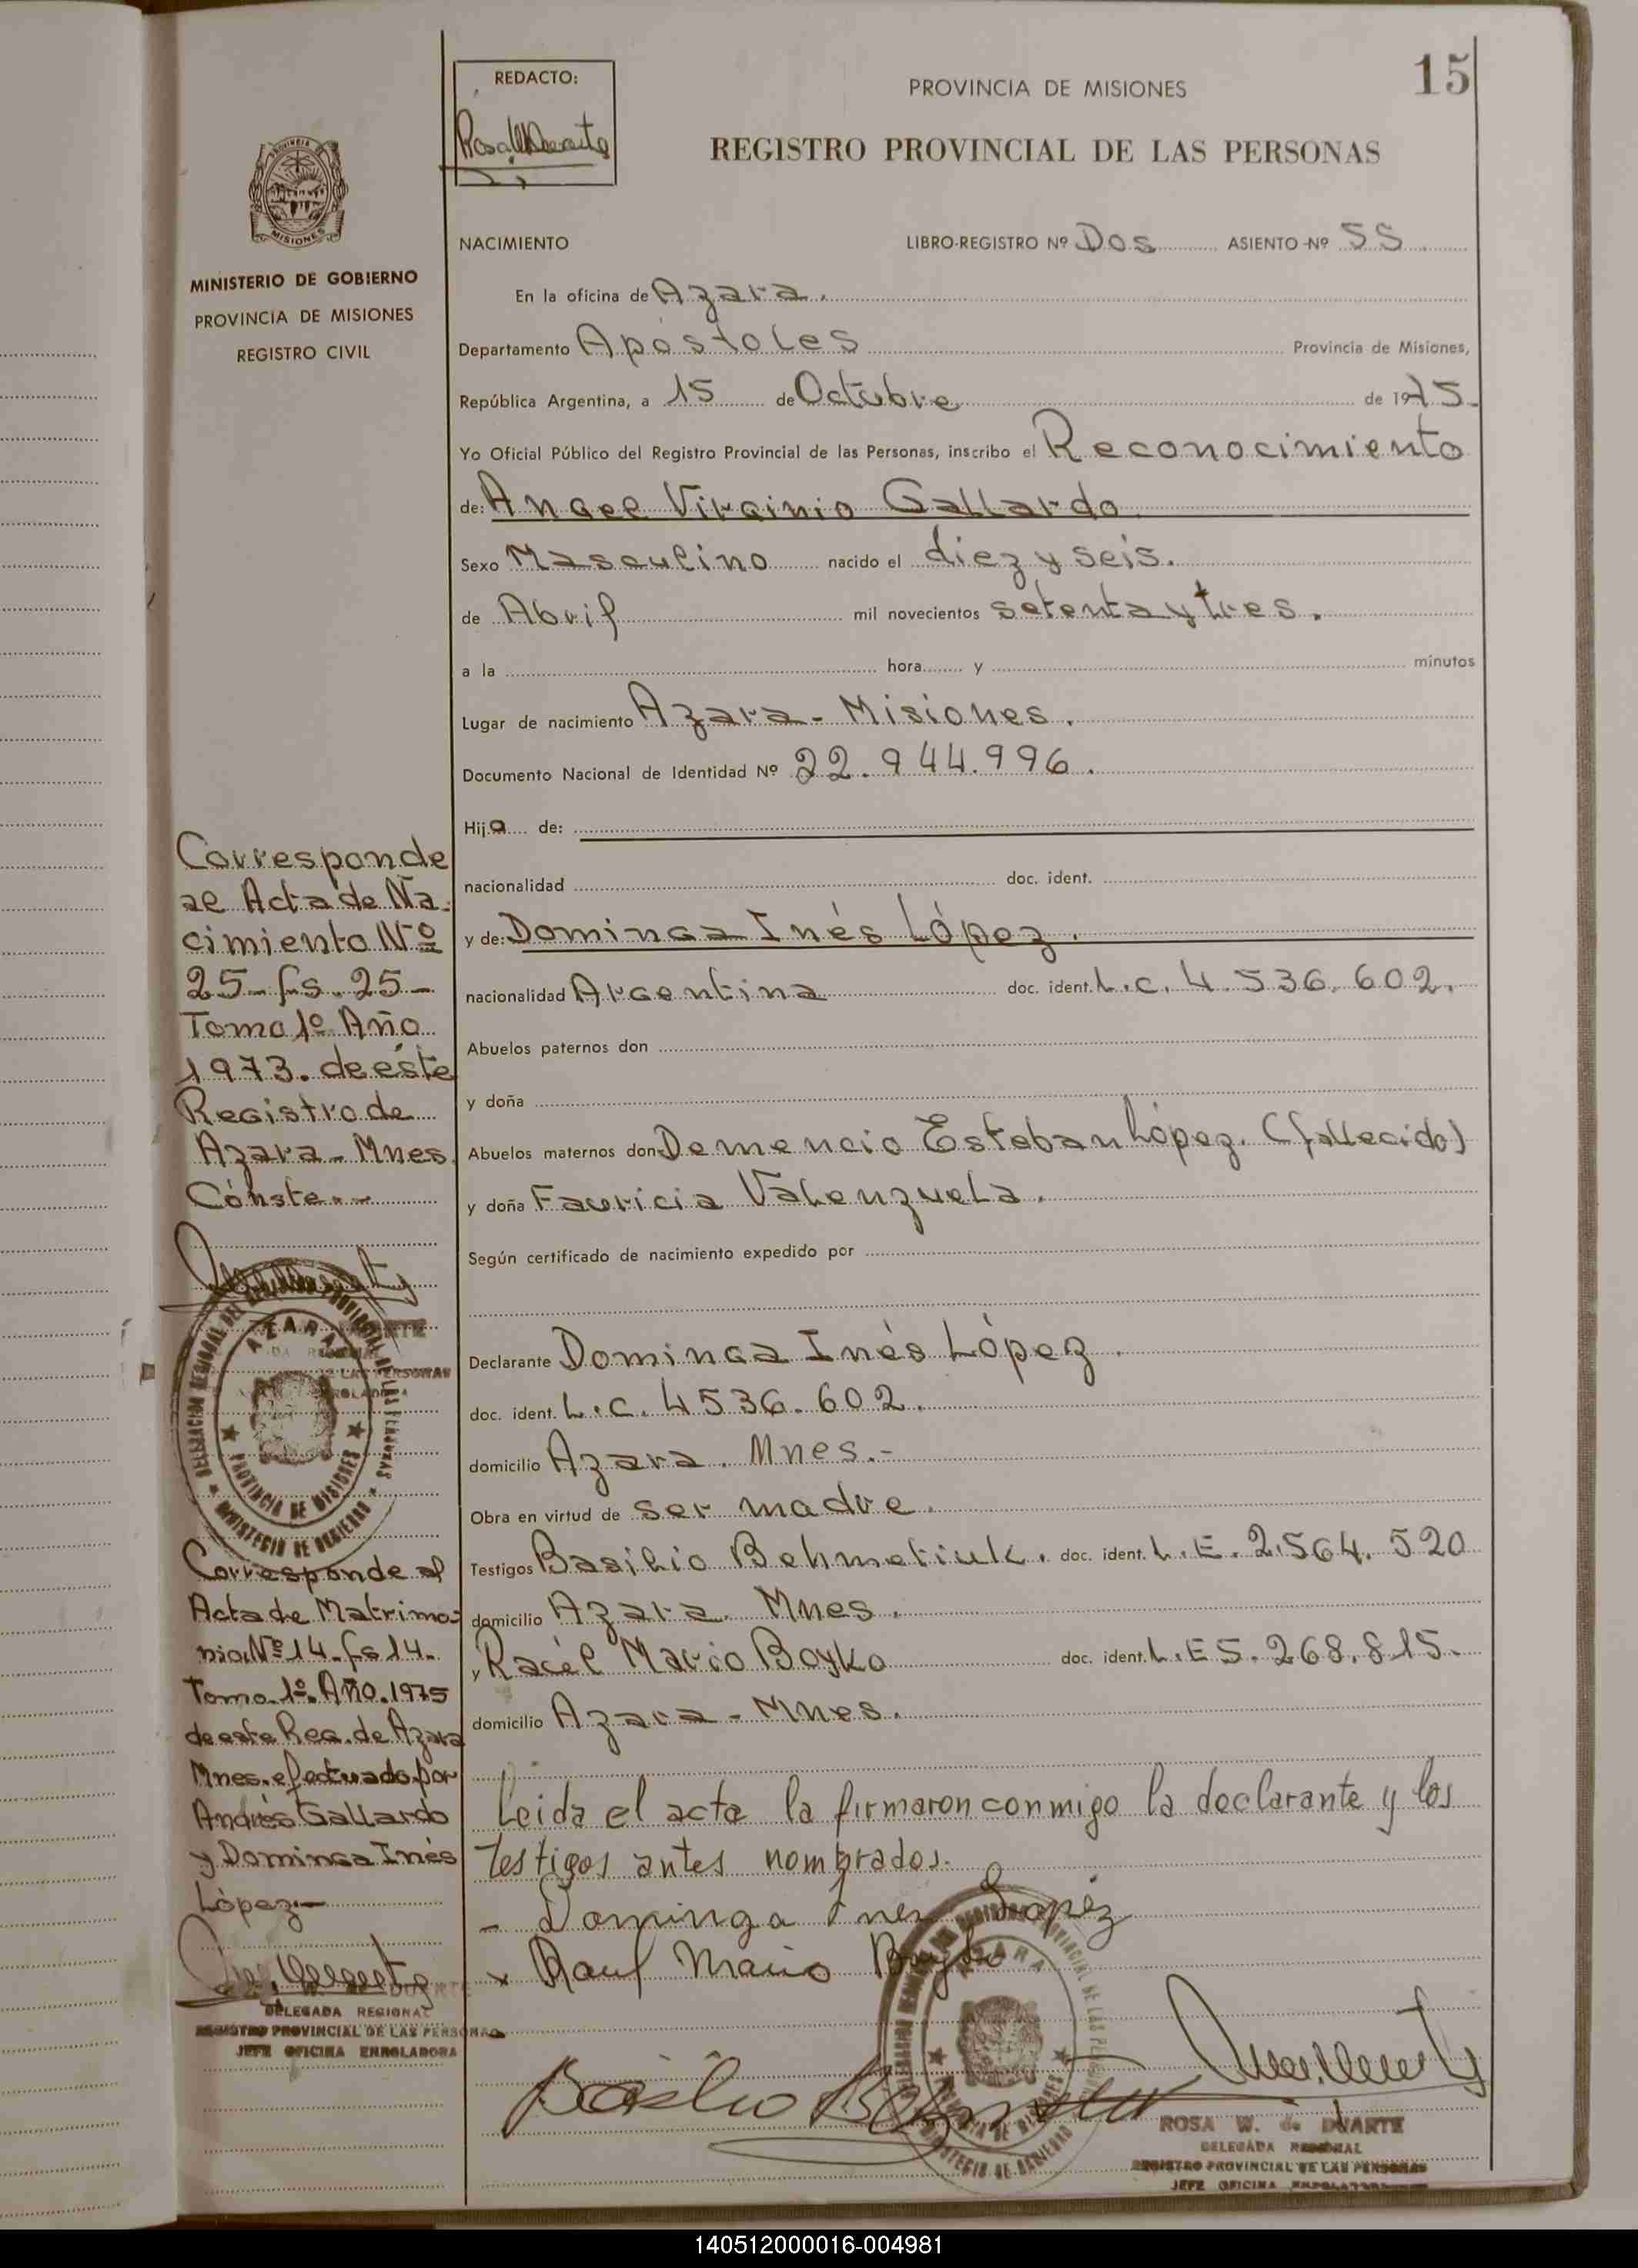 15
REDACTO:
PROVINCIA DE MISIONES
REGISTRO PROVINCIAL DE LAS PERSONAS
MISIONES
MINISTERIO DE GOBIERNO
PROVINCIA DE MISIONES
REGISTRO CIVIL
NACIMIENTO LIBRO-REGISTRO Nº Dos ASIENTO Nº 55
En la oficina de Azara.
Departamento Apóstoles Provincia de Misiones,
República Argentina, a 15 de Octubre de 1975
Yo Oficial Público del Registro Provincial de las Personas, inscribo el Reconocimiento
de: Angel Virginio Gallardo
Sexo Masculino nacido el diez y seis.
de Abril mil novecientos setenta y tres.
a la hora y minutos
Lugar de nacimiento Azara - Misiones.
Documento Nacional de Identidad Nº 22.944.996.
Hijo de:
nacionalidad doc. ident.
y de: Dominga Inés López.
nacionalidad Argentina doc. ident. L.C. 4.536.602.
Abuelos paternos don
y doña
Abuelos maternos don Demencio Esteban López. (fallecido)
y doña Fauricia Valenzuela.
Según certificado de nacimiento expedido por
Declarante Dominga Inés López.
doc. ident. L.C. 4536.602.
domicilio Azara. Mnes.-
Obra en virtud de ser madre.
Testigos Basilio Behmetiuk. doc. ident. L.E. 2.564.520
domicilio Azara. Mnes.
y Raúl Mario Boyko doc. ident. L.E 5.268.815.
domicilio Azara - Mnes.
Leida el acta la firmaron conmigo la declarante y los
testigos antes nombrados.
- Dominga Ines Lopéz
x Raul Mario Boyko
Basilio
ROSA W. de DUARTE
DELEGADA REGIONAL
REGISTRO PROVINCIAL DE LAS PERSONAS
JEFE OFICINA
Corresponde
al Acta de Na-
cimiento Nº
25 - fs. 25 -
Tomo 1º Año
1973. de éste
Registro de
Azara - Mnes.
Cónste.--
AZARA
PROVINCIA DE MISIONES
MINISTERIO DE GOBIERNO
Corresponde al
Acta de Matrimo-
nio Nº 14. fs 14.
Tomo 1º. Año. 1975
de este Reg. de Azara
Mnes. efectuado por
Andrés Gallardo
y Dominga Inés
López.-
DELEGADA REGIONAL
REGISTRO PROVINCIAL DE LAS PERSONAS
JEFE OFICINA ENROLADORA
140512000016-004981